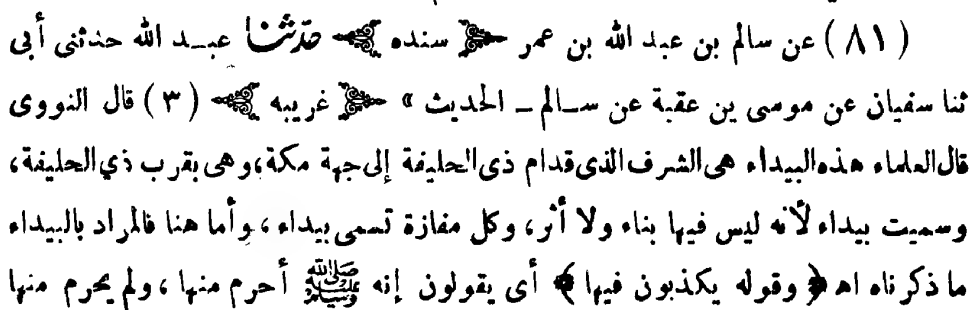 ( ٨١ ) عن سالم بن عبد الله بن عمر ﴿ سنده ﴾ حدّثنا عبد الله حدثنى أبى
ثنا سفيان عن موسى بن عقبة عن سالم ـ الحديث » ﴿ غريبه ﴾ ( ٣ ) قال النووى
قال العلماء هذه البيداء هى الشرف الذى قدام ذى الحليفة إلى جهة مكة، وهى بقرب ذي الحليفة،
وسميت بيداء لأنه ليس فيها بناء ولا أثر، وكل مفازة تسمى بيداء، وأما هنا فالمراد بالبيداء
ما ذكرناه اه ﴿ وقوله يكذبون فيها ﴾ أى يقولون إنه ﷺ أحرم منها، ولم يحرم منها